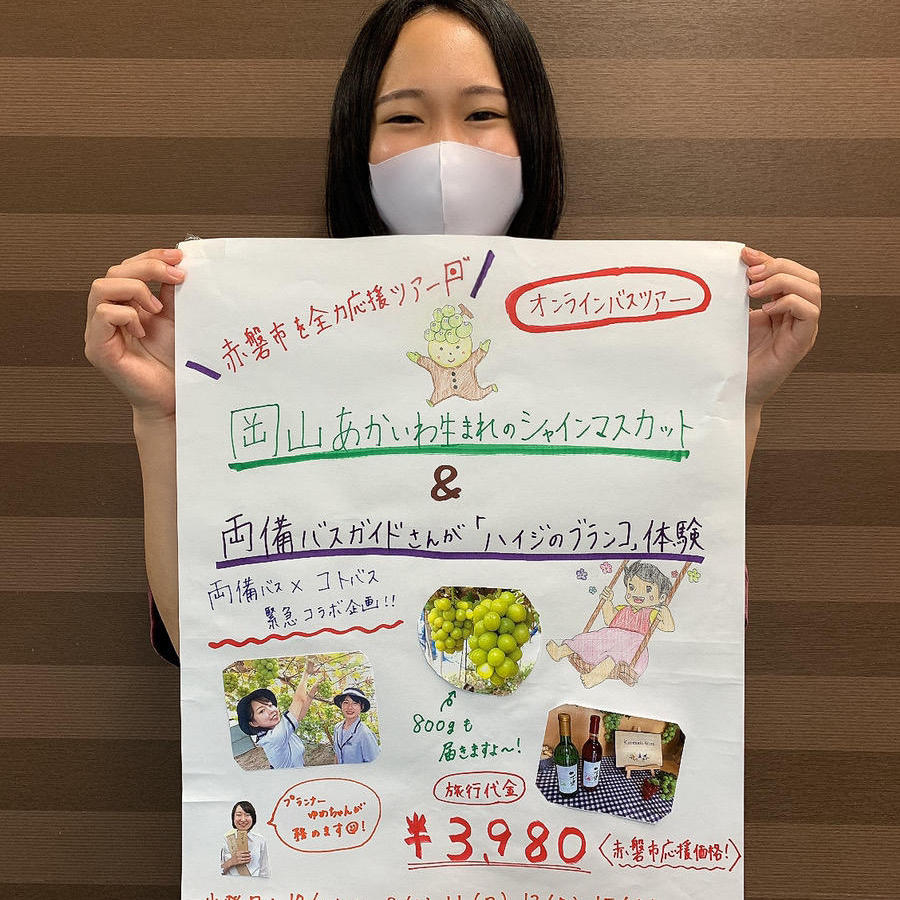 赤磐市を全力応援ツアー
オンラインバスツアー
岡山あかいわ生まれのシャインマスカット
&
両備バスガイドさんが「ハイジのブランコ」体験
両備バス×コトバス
緊急コラボ企画!!
800gも
届きますよ~!
旅行代金
プランナー
ゆめちゃんが
務めます!
¥3,980
〈赤磐市応援価格!〉